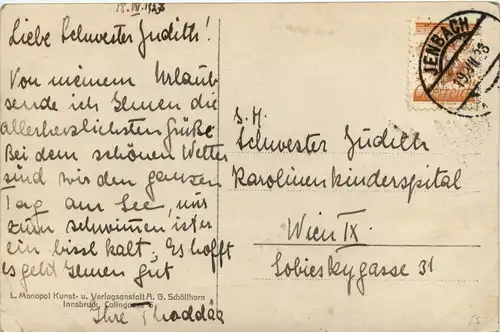 18. VII. 1928
Liebe Schwester Judith!
Von meinem Urlaub
sende ich Ihnen die
allerherzlichsten Grüße.
Bei dem schönen Wetter
sind wir den ganzen
Tag am See, nur
zum schwimmen ist er
ein bissl kalt. Es hofft
es geht Ihnen gut
Ihre
L. Monopol Kunst- u. Verlagsanstalt A. G. Schöllhorn
Innsbruck, Colingasse
JENBACH
19. VII. 8
S. H.
Schwester Judith
Karolinenkinderspital
Wien IX.
Sobieskygasse 31